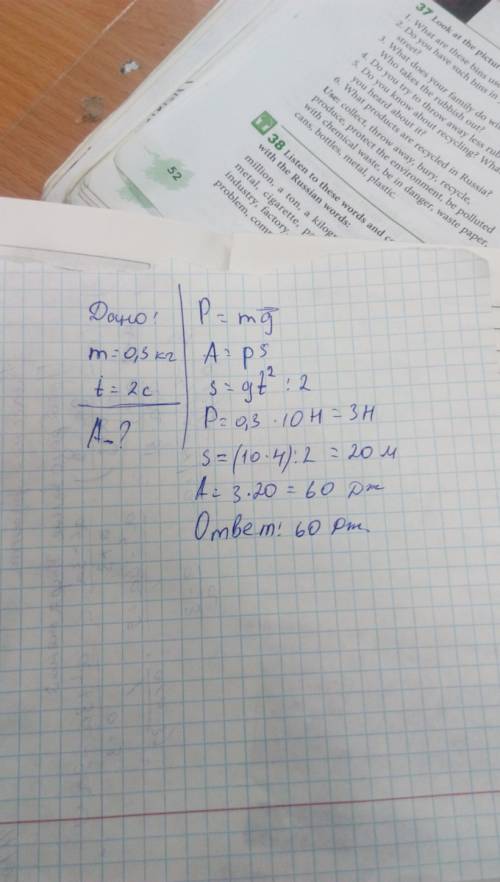 37 Look at the pictur
1. What are these bins use
2. Do you have such bins in
street?
3. What does your family do w
4. Who takes the rubbish out?
5. Do you try to throw away less rub
6. Do you know about recycling? Wha
you heard about it?
What products are recycled in Russia?
Use: collect, throw away, bury, recycle,
produce, protect the environment, be polluted
with chemical waste, be in danger, waste paper,
cans, bottles, metal, plastic.
38 Listen to these words and co
with the Russian words:
million, a ton, a kilogr
metal, cigarette, p
industry, factory,
problem, comp
52
Дано:
m = 0,3 кг
t = 2 с
A - ?
P = mg
A = ps
s = gt² : 2
P = 0,3 · 10 Н = 3 Н
s = (10 · 4) : 2 = 20 м
A = 3 · 20 = 60 Дж
Ответ: 60 Дж